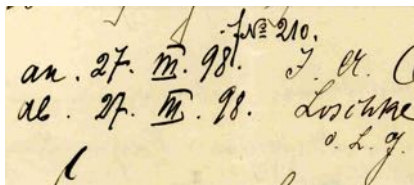 J№ 210.
an. 27. III. 98. J. A.
ab. 27. III. 98. Loschke
d. L. J.